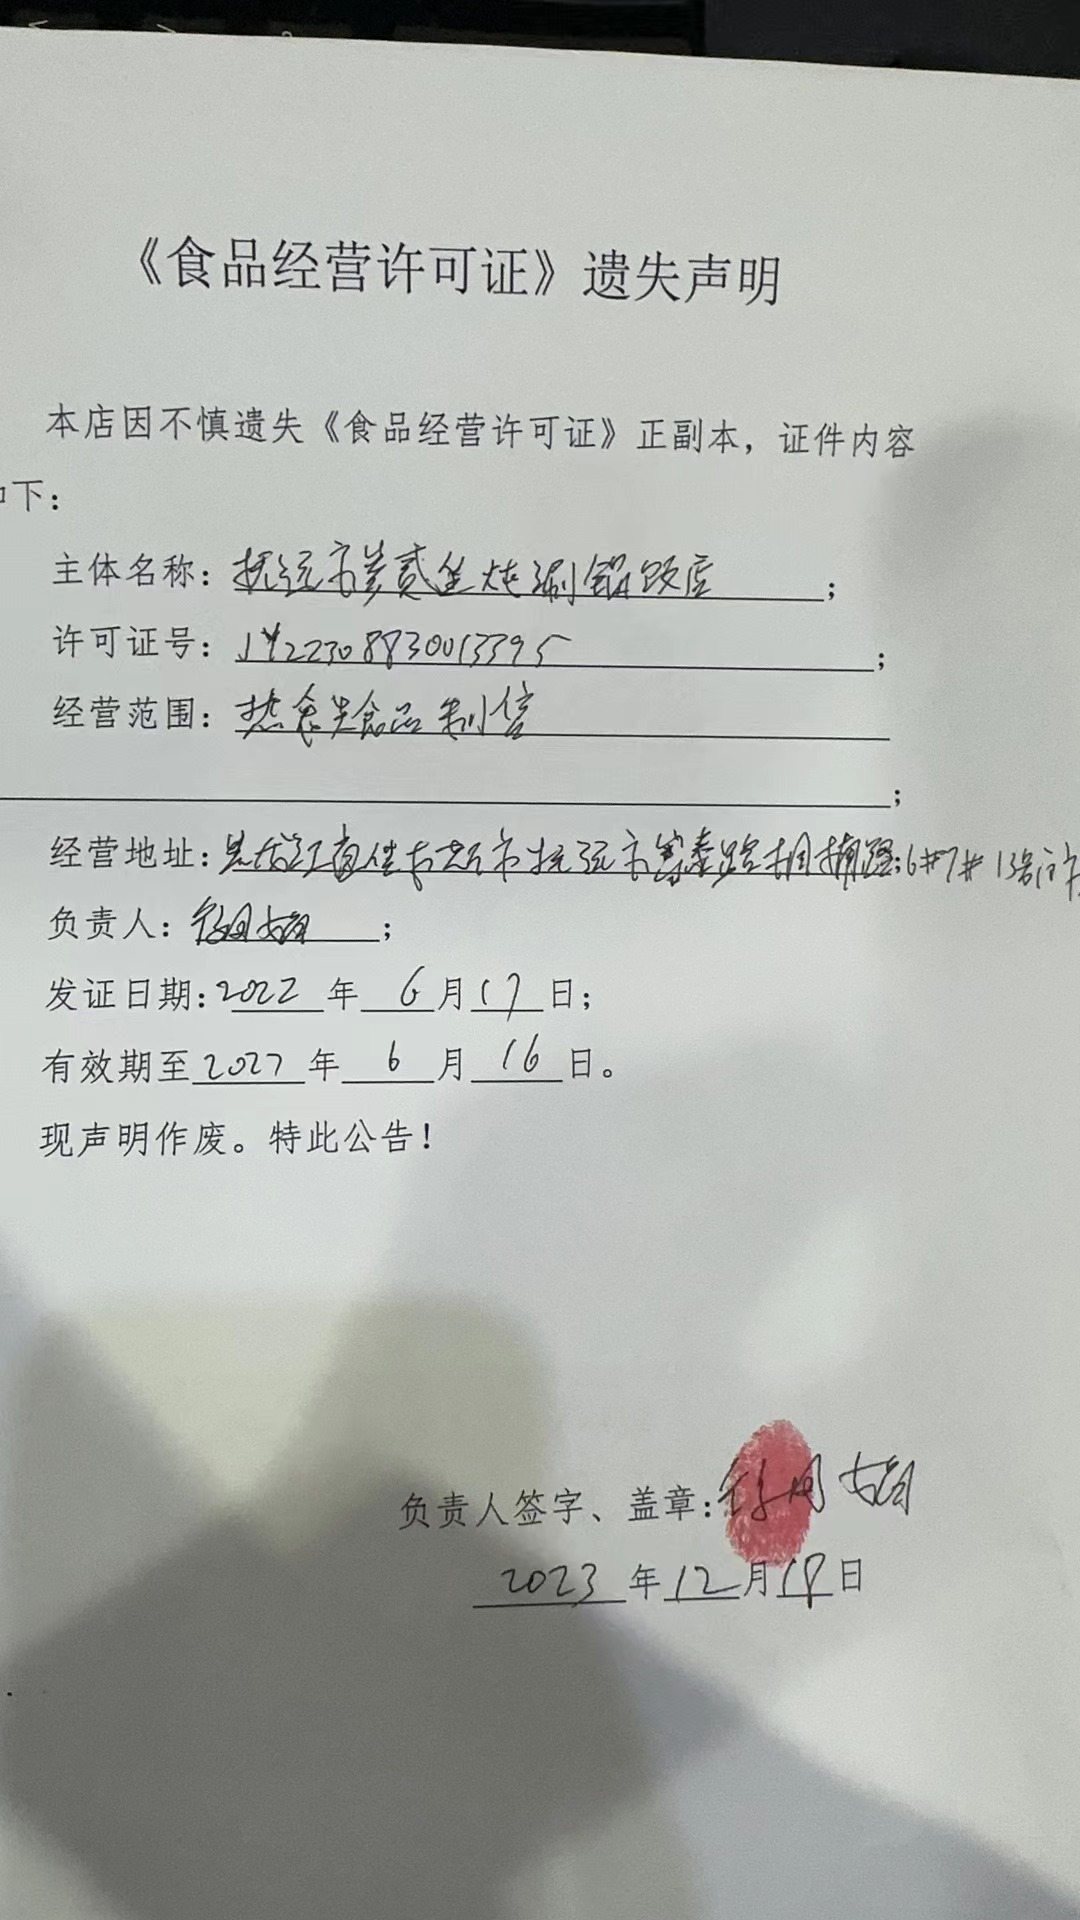 《食品经营许可证》遗失声明
本店因不慎遗失《食品经营许可证》正副本，证件内容
如下：
主体名称：抚远市叁贰叁炖涮锅饭店；
许可证号：JY22308830013395；
经营范围：热食类食品制售
；
经营地址：黑龙江省佳木斯市抚远市 6#7#13号门市
负责人：；
发证日期：2022年6月17日；
有效期至2027年6月16日。
现声明作废。特此公告！
负责人签字、盖章：
2023年12月19日